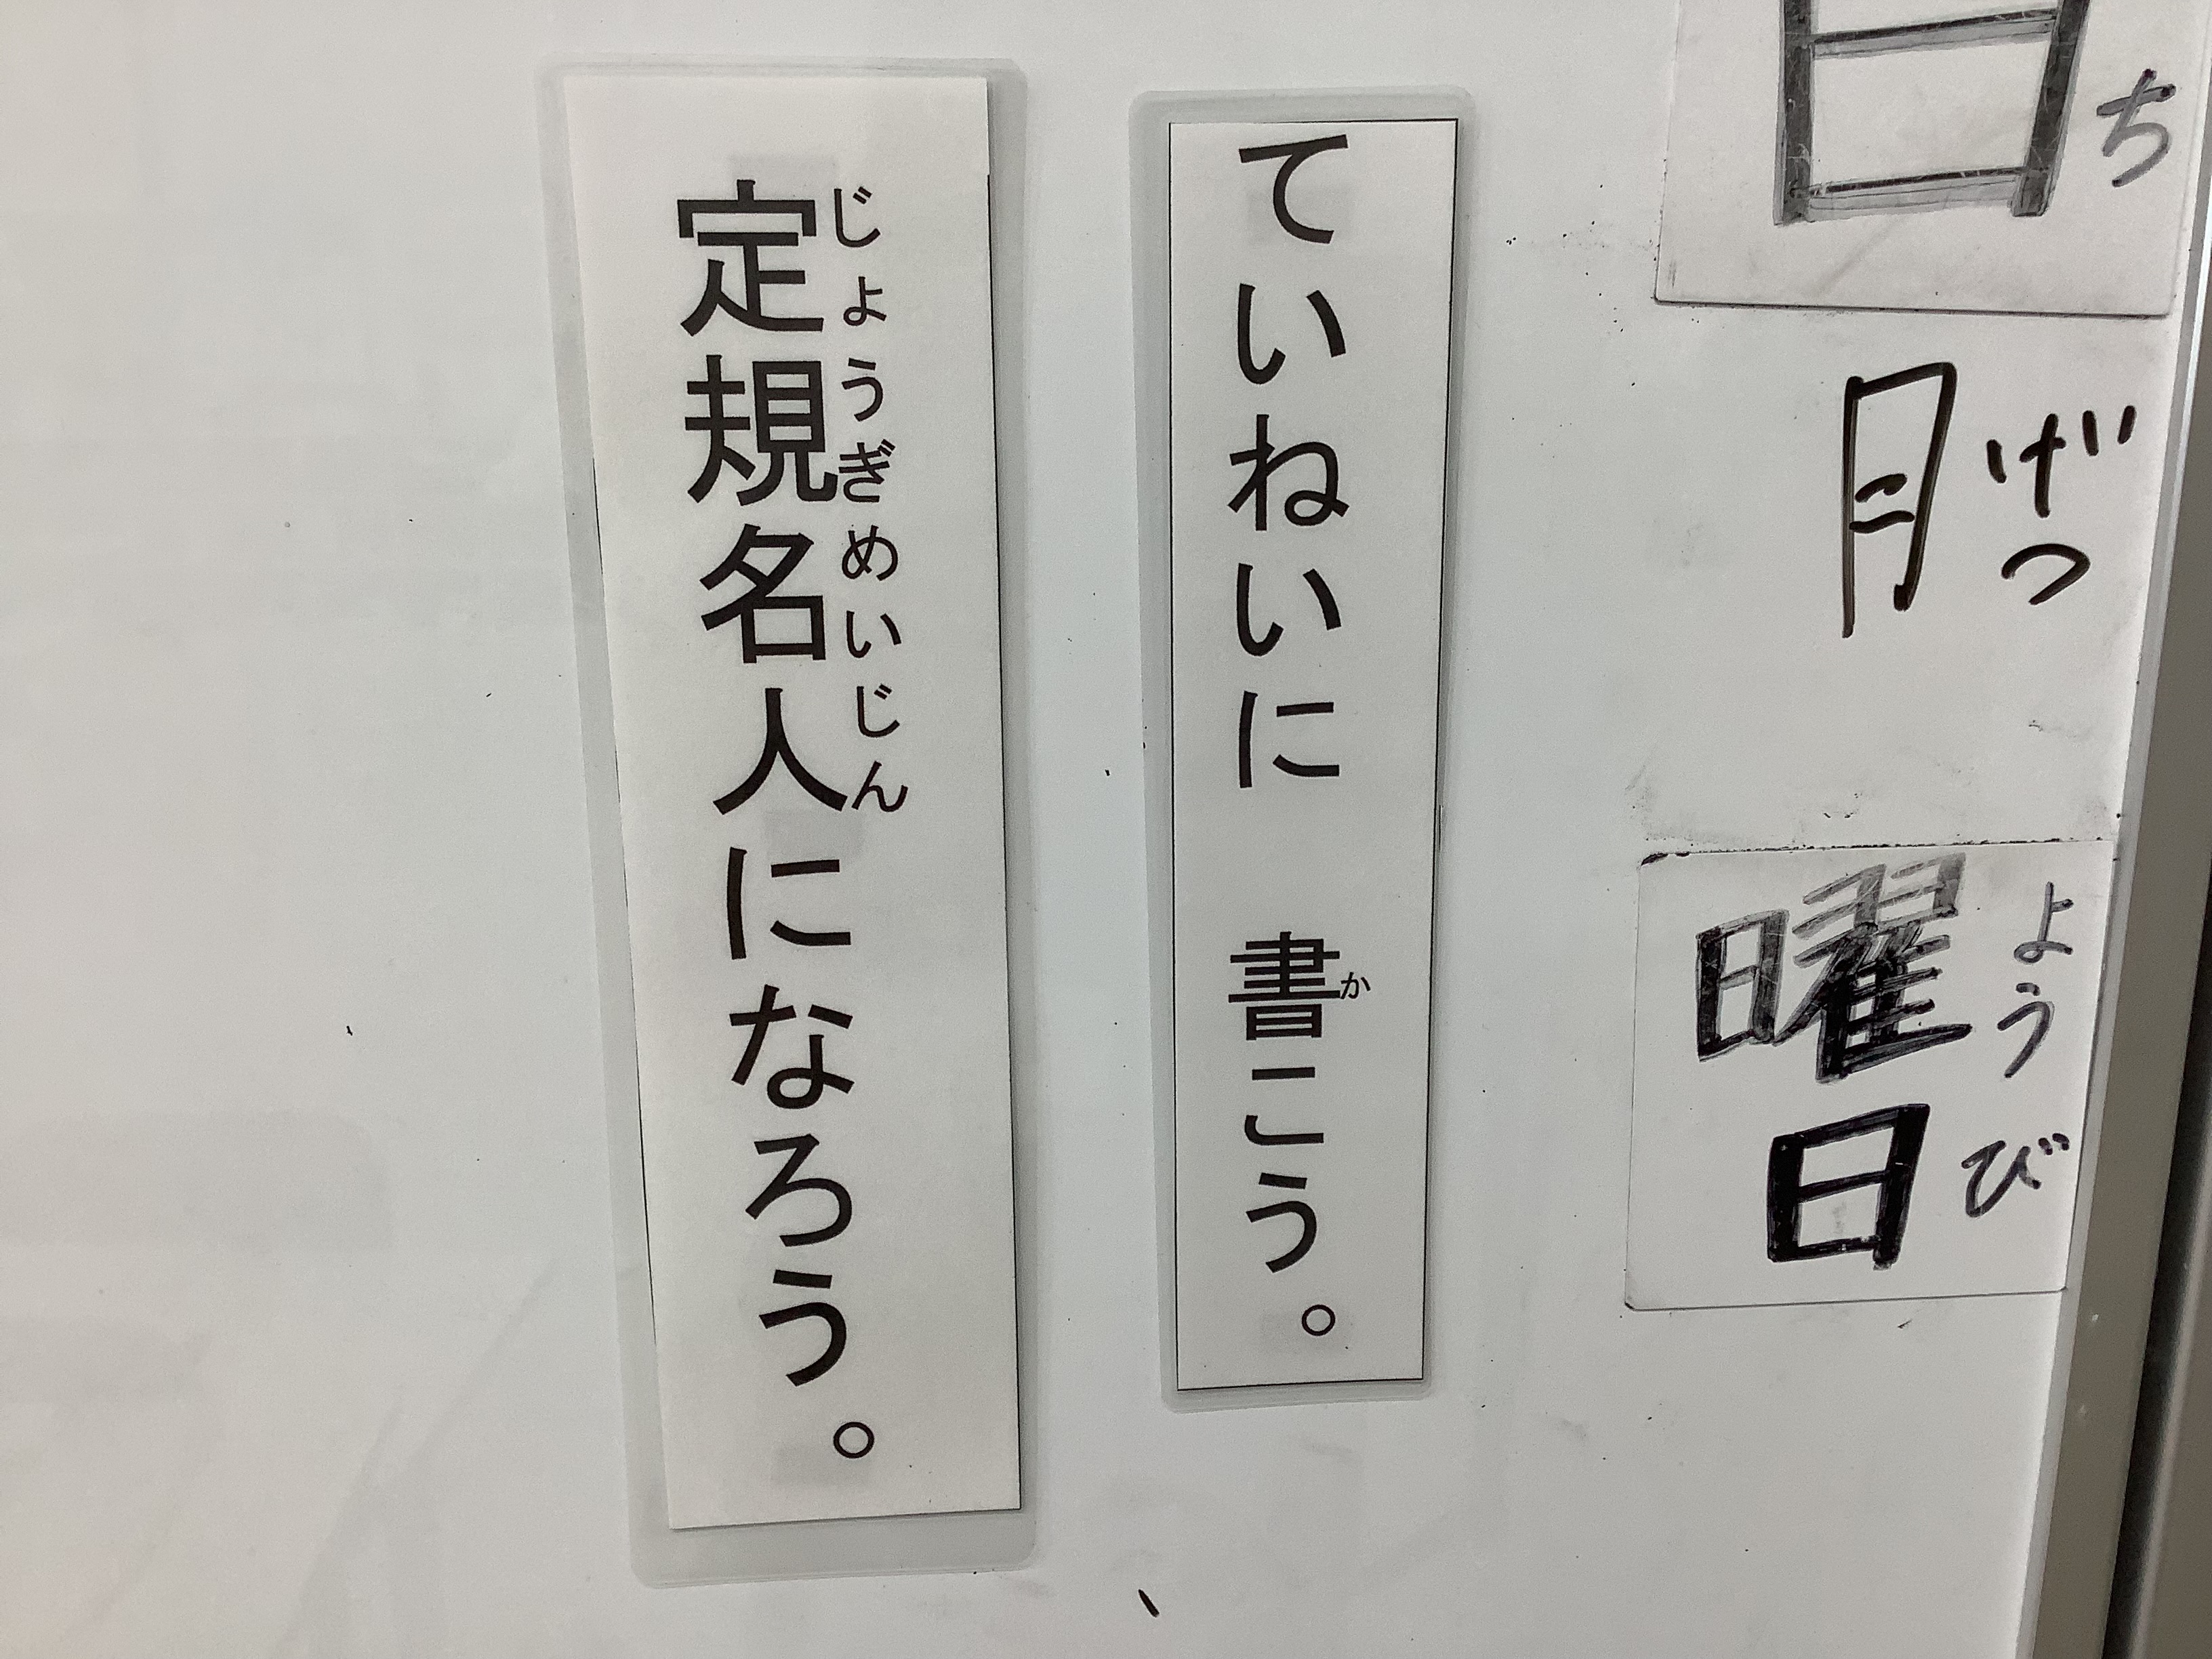 日
ち
月
げつ
曜日
ようび
ていねいに　書こう。
か
定規名人になろう。
じょうぎめいじん